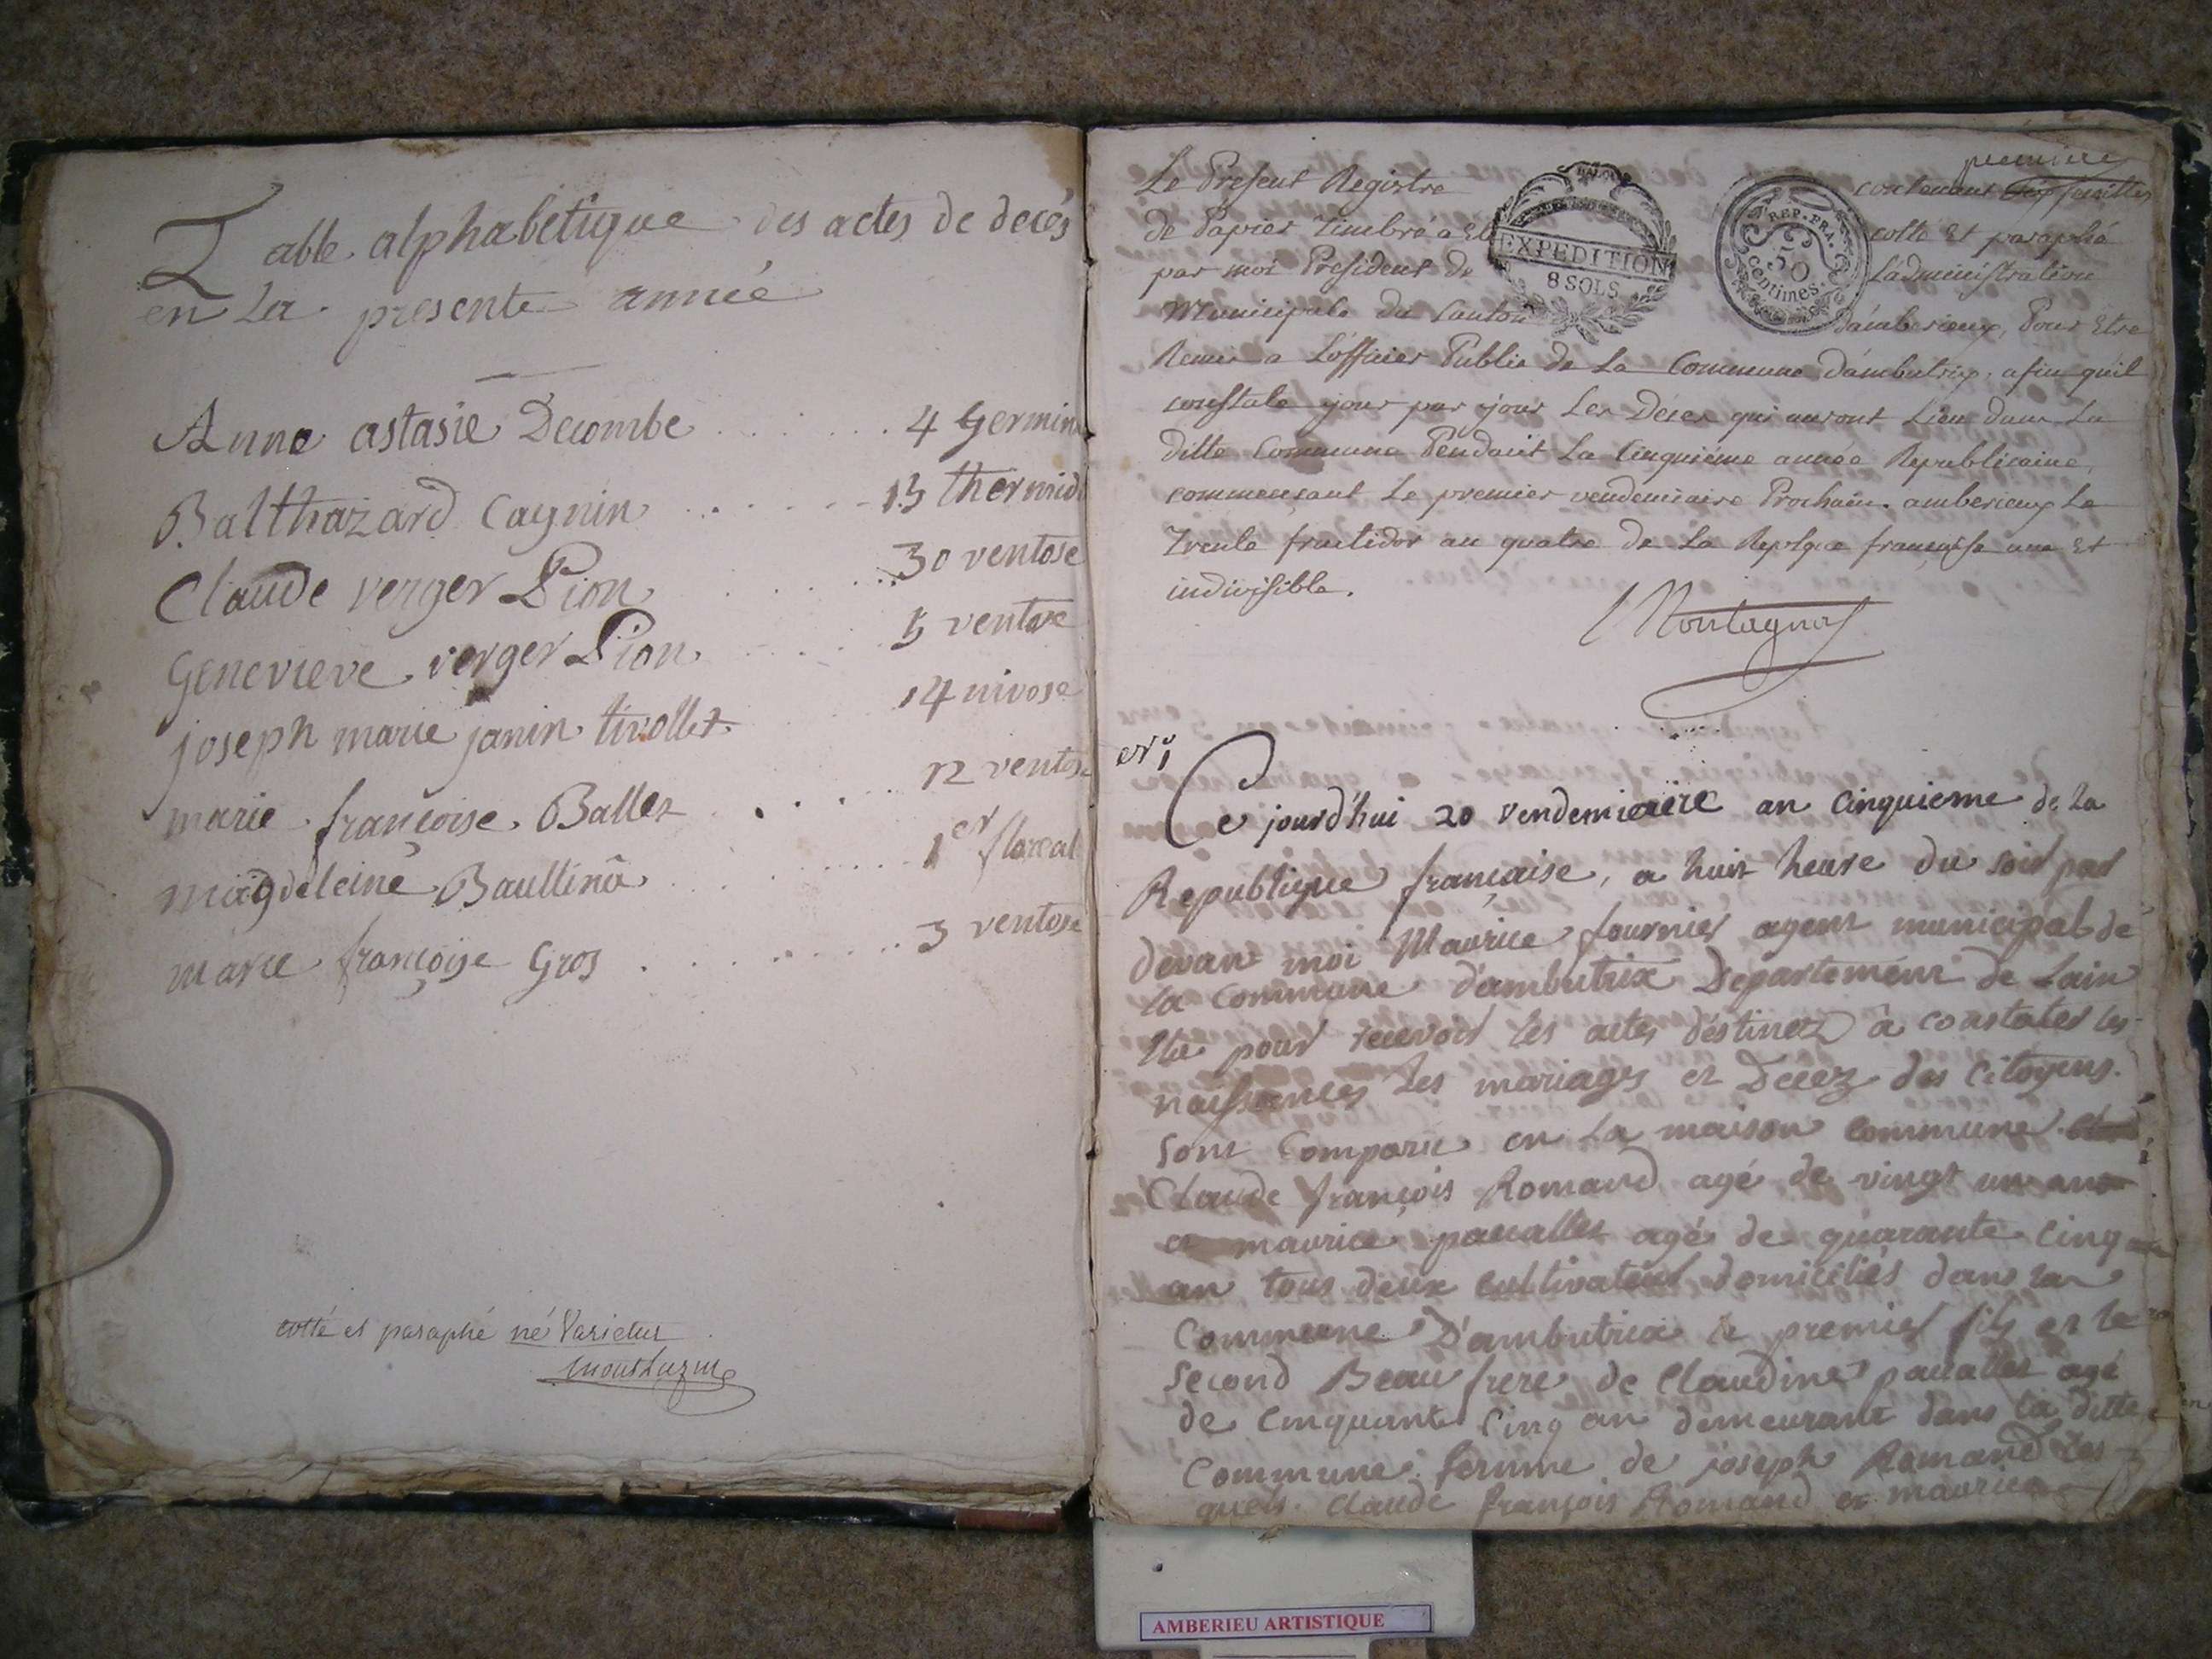 Table alphabétique des actes de decés
en La presente année
Anne astasie Decombe ....... 4 Germin
Balthazard Cagnin ...... 15 thermid
Claude verger Pion ..... 30 ventose
Genevieve verger Pion ..... 5 ventose
joseph marie janin tirollet 14 nivose
marie françoise Ballet ..... 12 ventose
magdeleine Baullina ..... 1er floreal
marie françoise Gros ........ 3 ventose
cotté et paraphé né Varietur
premiere
Le Present Registre contenant six feuilles
de Papier Timbré a Eté cotté Et paraphé
par moi President de Ladministration
Municipale du Canton d'amberieux, Pour Etre
Remis a L'officier Public de La Commune d'ambutrix, afin quil
constate jour par jour Les Décès qui auront Lieu dans La
ditte Commune Pendant La Cinquième année Republicaine,
commençant Le premier vendemiaire Prochain. amberieux Le
Trente fructidor an quatre de La Repsque française une Et
indivisible.
Montagnat
EXPEDITION
8 SOLS
REP. FRA.
50
centimes.
No 1
Ce jourd'hui 20 vendemiaire an Cinquieme de La
Republique française, a huit heure du soir par
devant moi Maurice fournier agent municipal de
la Commune d'ambutrix Departement de Lain
Elu pour recevoir les actes destinez a constater les
naissances les mariages et Decez des Citoyens.
sont Comparu en la maison commune
Claude françois Romand agé de vingt un ans
et maurice pacallet agé de quarante cinq
an tous deux cultivateur domiciliés dans la
Commune D'ambutrix le premier fils et le
second Beau frere de Claudine pacallet agé
de cinquante cinq an demeurant dans la ditte
Commune femme de joseph Romand les
quels Claude françois Romand et maurice
AMBERIEU ARTISTIQUE